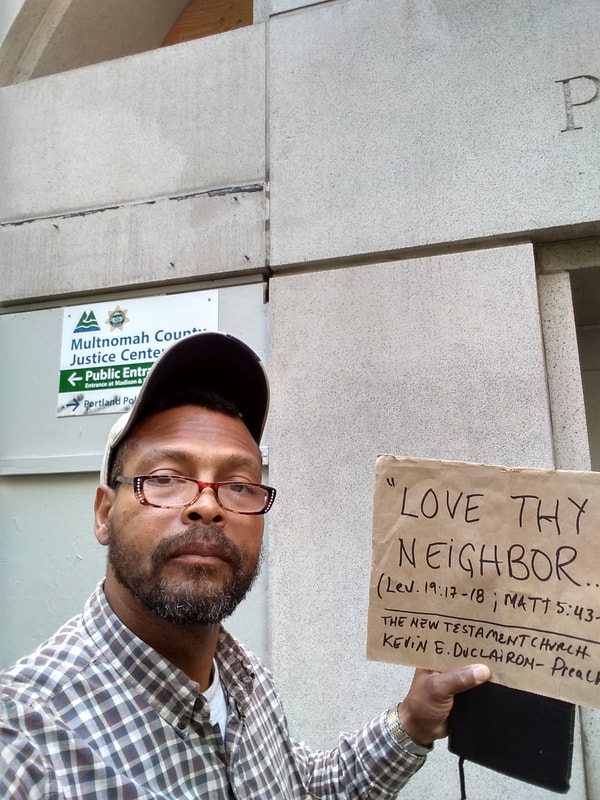 P
Multnomah County
Justice Center
← Public Entra
Entrance at Madison &
→ Portland Pol
"LOVE THY
NEiGHBOR...
(Lev. 19:17-18 ; MATT 5:43-
THE NEW TESTAMENT CHURCH
KEViN E. DUCLAIRON- Preach